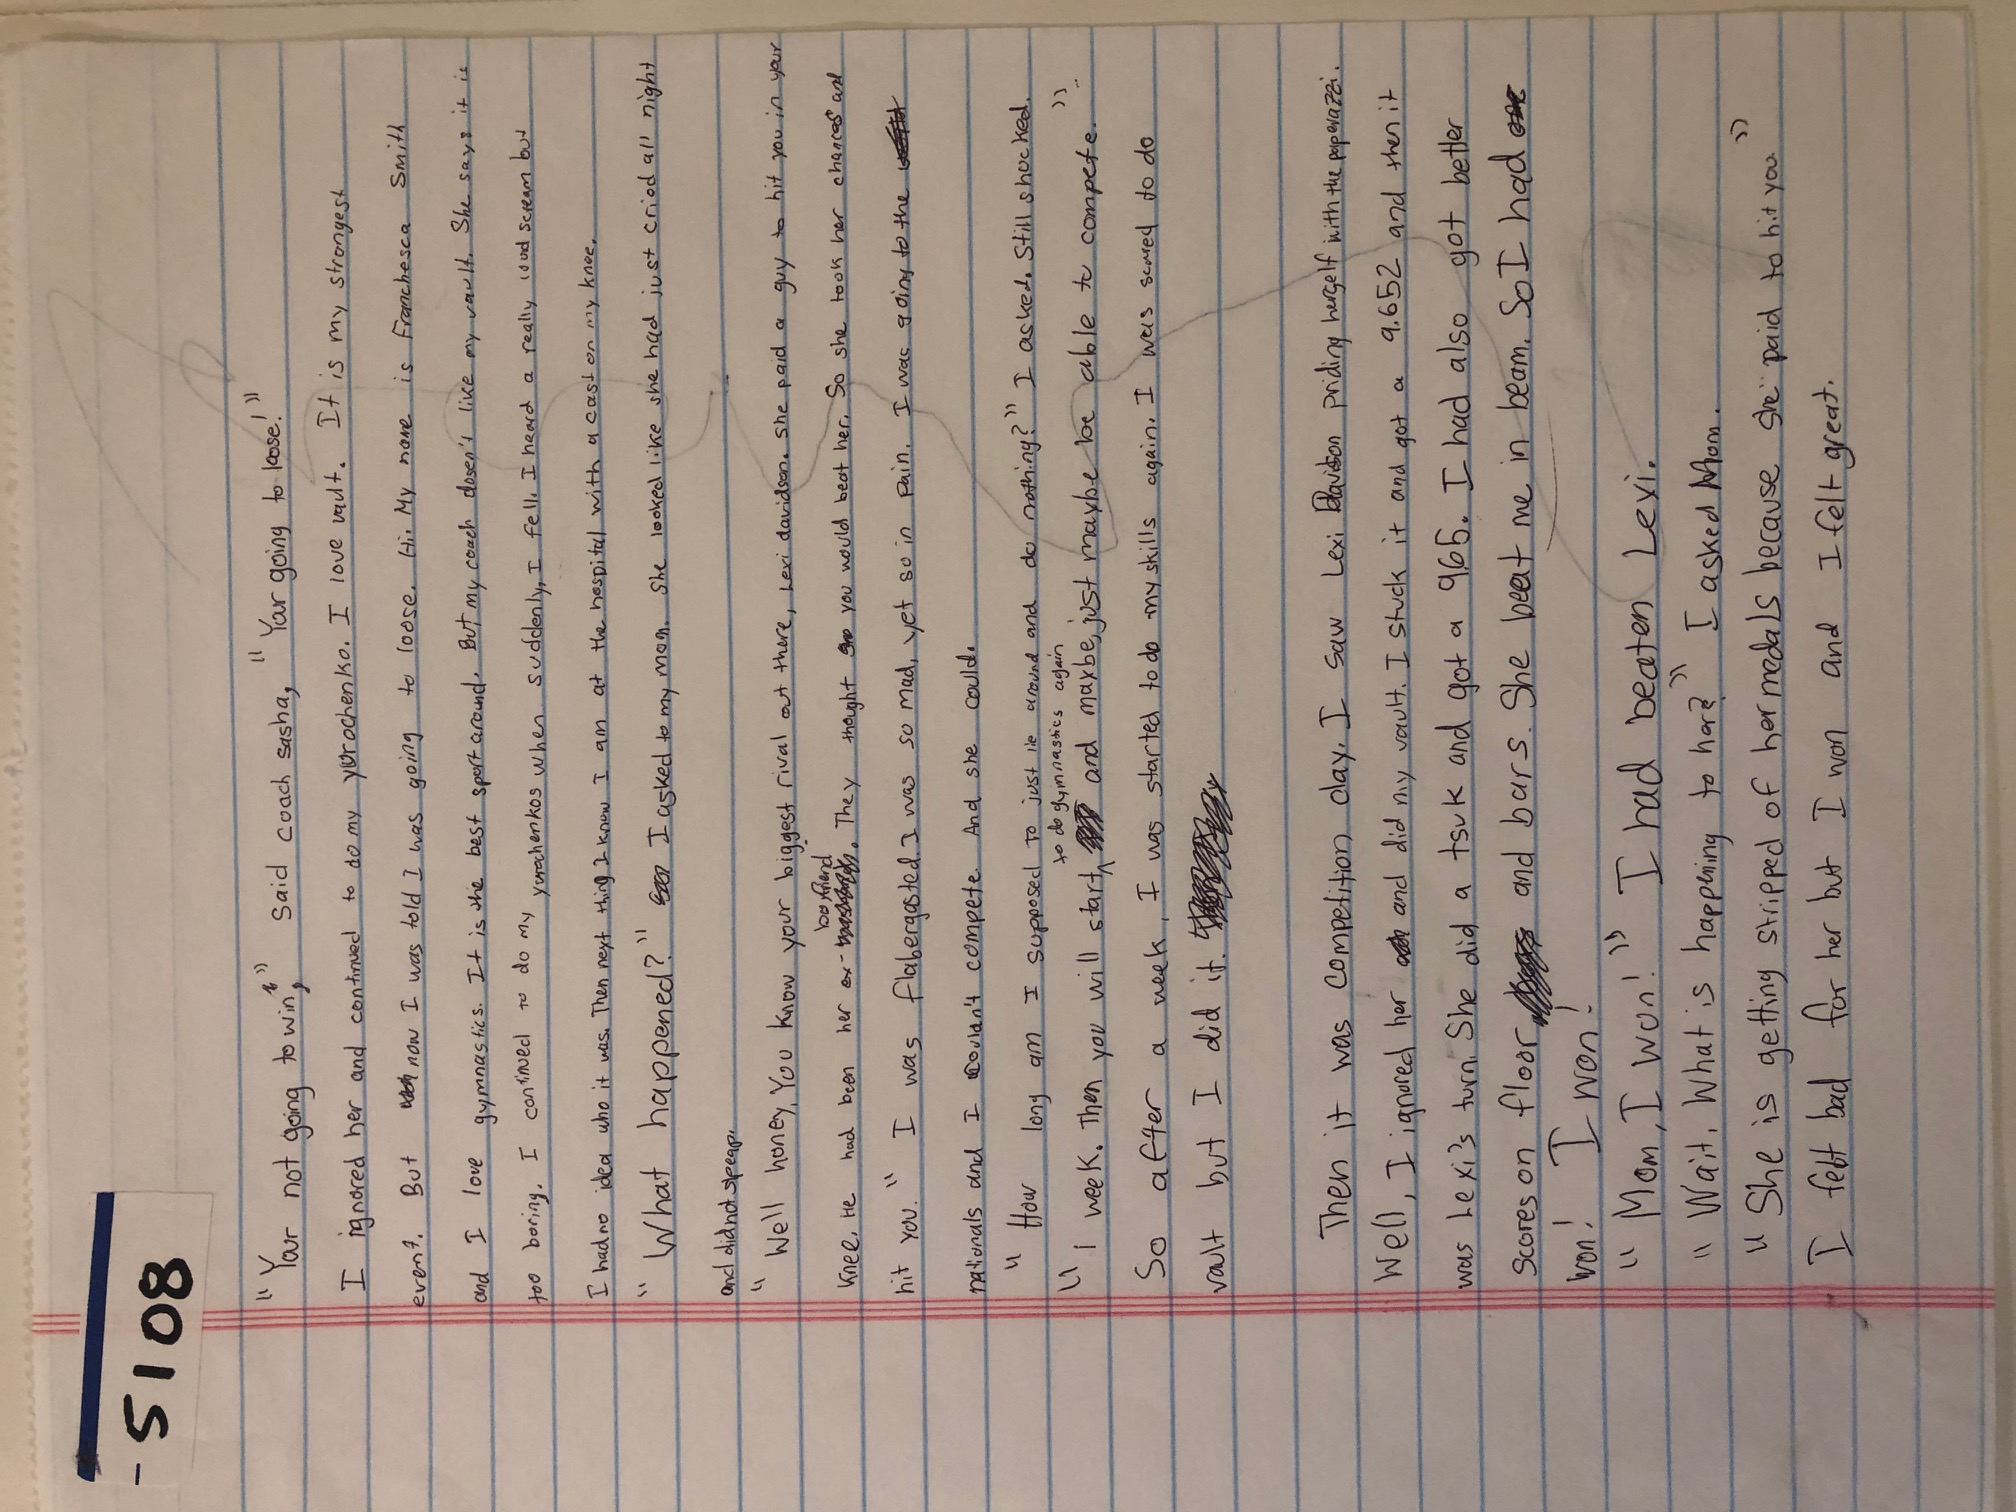 - 5108
"Your not going to win," said coach sasha, "Your going to loose!"
I ignored her and continued to do my yurochenko. I love vault. It is my strongest
event. But now I was told I was going to loose. Hi. My name is Franchesca Smith
and I love gymnastics. It is the best sport around. But my coach dosen't like my vault. She says it is
too boring. I continued to do my yurochenkos when suddenly, I fell. I heard a really loud scream but
I had no idea who it was. Then next thing I know I am at the hospital with a cast on my knee.
"What happened?" I asked to my mom. She looked like she had just cried all night
and did not
"Well honey, You know your biggest rival out there, Lexi davidson. She paid a guy to hit you in your
boyfriend
knee. He had been her ex-. They thought you would beat her. So she took her chances and
hit you." I was flabergasted. I was so mad, yet so in pain. I was going to the
nationals and I couldn't compete. And she could.
"How long am I supposed to just lie around and do nothing?" I asked. Still shocked.
to do gymnastics again
"1 week. Then you will start and maybe, just maybe be able to compete."
So after a week, I was started to do my skills again. I was scared to do
vault but I did it.
Then it was competition day. I saw Lexi Davison priding herself with the paperazzi.
Well, I ignored her and did my vault. I stuck it and got a 9.652 and then it
was Lexi's turn. She did a tsuk and got a 9.65. I had also got better
scores on floor and bars. She beat me in beam. So I had
won! I won!
"Mom, I won!" I had beaten Lexi.
"Wait. What is happening to her?" I asked Mom.
"She is getting stripped of her medals because she paid to hit you."
I felt bad for her but I won and I felt great.